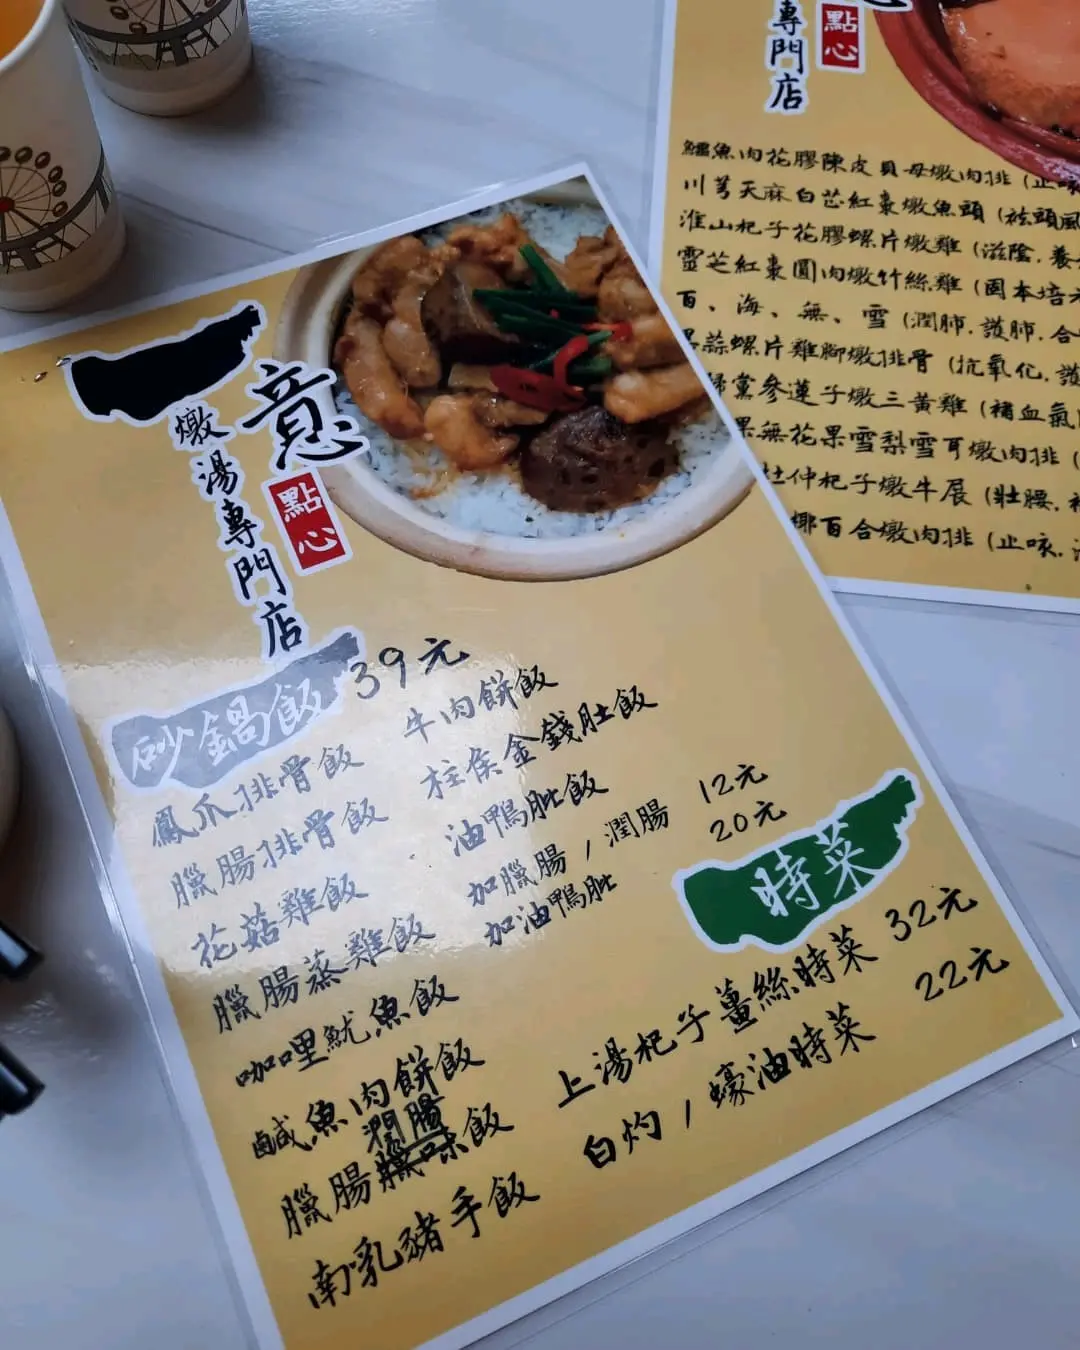 意
點心
燉湯專門店
砂鍋飯 39元
鳳爪排骨飯
臘腸排骨飯
花菇雞飯
臘腸蒸雞飯
咖哩魷魚飯
鹹魚肉餅飯
臘腸潤腸飯
南乳豬手飯
牛肉餅飯
柱侯金錢肚飯
油鴨肶飯
加臘腸/潤腸 12元
加油鴨肶 20元
時菜
上湯杞子薑絲時菜 32元
白灼/蠔油時菜 22元
專門店
點心
鱷魚肉花膠陳皮貝母燉肉排(止咳
川芎天麻白芷紅棗燉魚頭(祛頭風
淮山杞子花膠螺片燉雞(滋陰.養
靈芝紅棗圓肉燉竹絲雞(固本培元
百、海、無、雪(潤肺.護肺.合
蒜螺片雞腳燉排骨(抗氧化.護
歸黨參蓮子燉三黃雞(補血氣
果無花果雪梨雪耳燉肉排(
杜仲杞子燉牛展(壯腰.補
椰百合燉肉排(止咳.